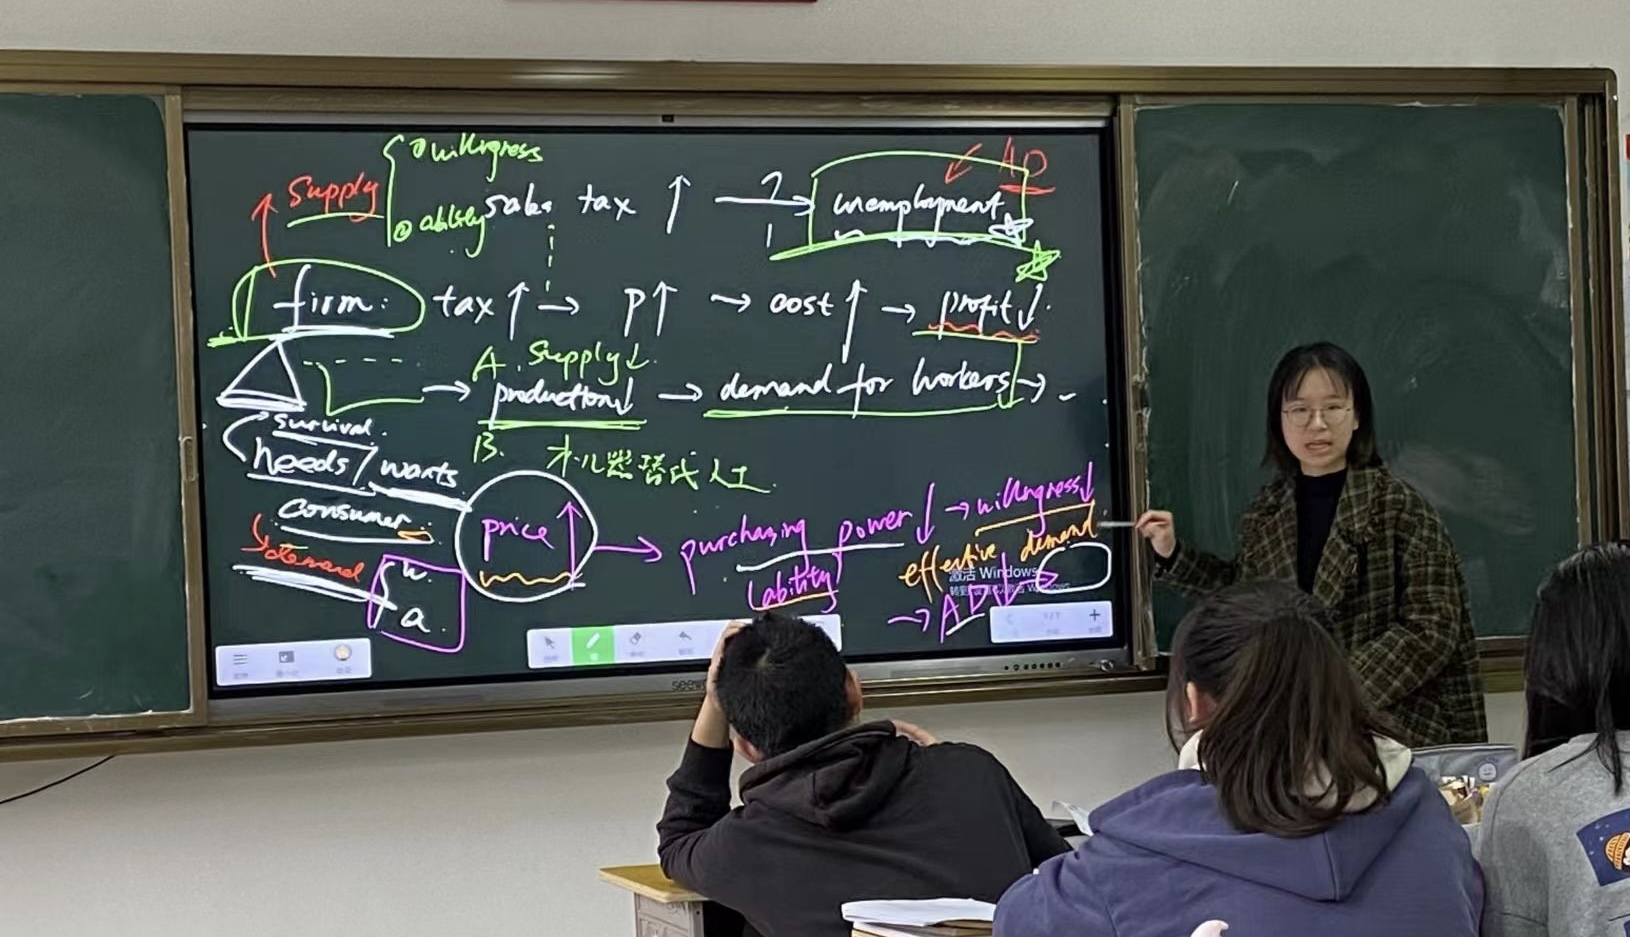 ① willingness
Supply
② ability
sales tax ↑ → ?
unemployment
AD
firm: tax ↑ → P↑ → cost ↑ → profit ↓.
A. Supply ↓.
→ production ↓ → demand for workers →
survival.
needs / wants
B.
替代人工
consumer
demand
w.
a.
price ↑ → purchasing power ↓ → willingness ↓
(ability)
effective demand
→ AD ↓
激活 Windows
seewo